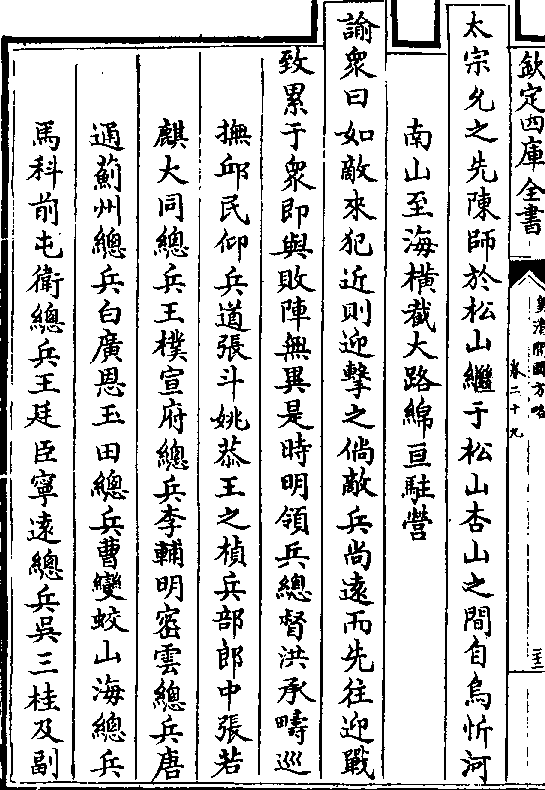 欽定四庫全書
皇清開國方略
卷二十九
太宗允之先陳師於松山繼于松山杏山之間自烏忻河
南山至海橫截大路綿亘駐營
諭衆曰如敵來犯近則迎擊之倘敵兵尚遠而先往迎戰
致累于衆即與敗陣無異是時明領兵總督洪承疇巡
撫邱民仰兵道張斗姚恭王之楨兵部郎中張若
麒大同總兵王樸宣府總兵李輔明密雲總兵唐
通薊州總兵白廣恩玉田總兵曹變蛟山海總兵
馬科前屯衛總兵王廷臣寧遠總兵吳三桂及副